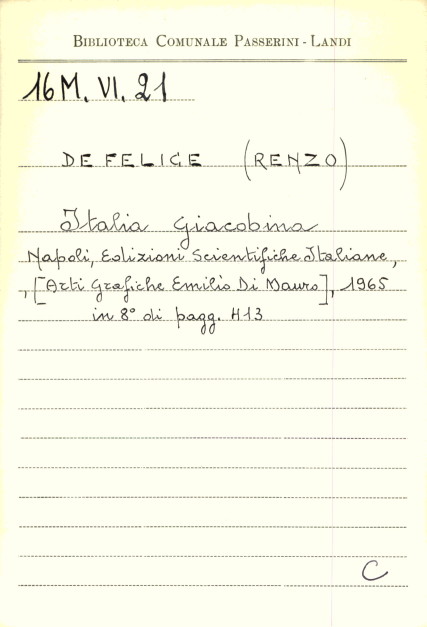 BIBLIOTECA COMUNALE PASSERINI - LANDI
16 M. VI. 21
DE FELICE (RENZO)
Italia Giacobina
Napoli, Edizioni Scientifiche Italiane,
, [Arti Grafiche Emilio Di Mauro], 1965
in 8° di pagg. 413
C